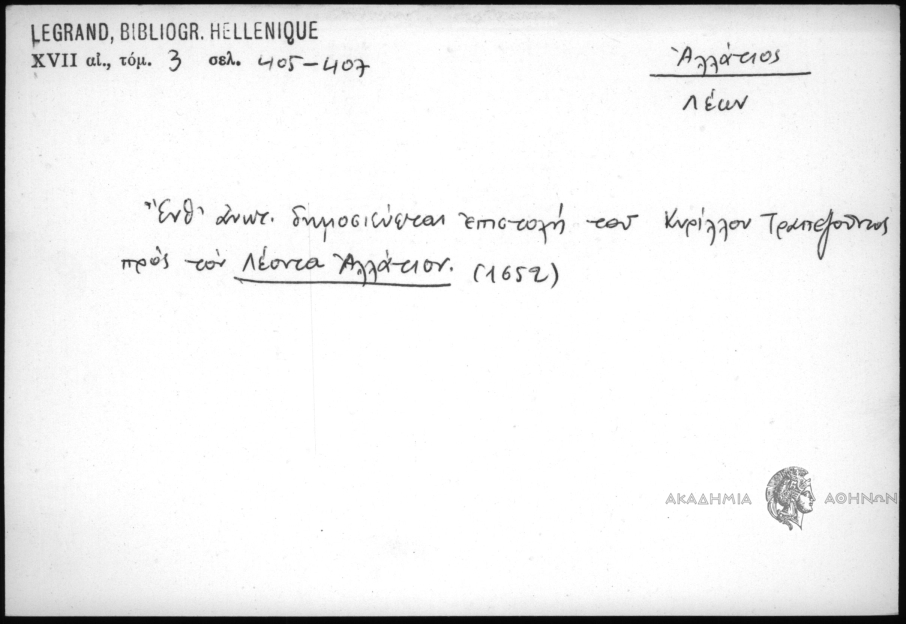 LEGRAND, BIBLIOGR. HELLENIQUE
XVII αἰ., τόμ. 3 σελ. 405-407
Ἀλλάτιος
Λέων
Ἔνθ' ἀνωτ. δημοσιεύεται ἐπιστολή τοῦ Κυρίλλου Τραπεζοῦντος
πρὸς τὸν Λέοντα Ἀλλάτιον. (1652)
ΑΚΑΔΗΜΙΑ ΑΘΗΝΩΝ